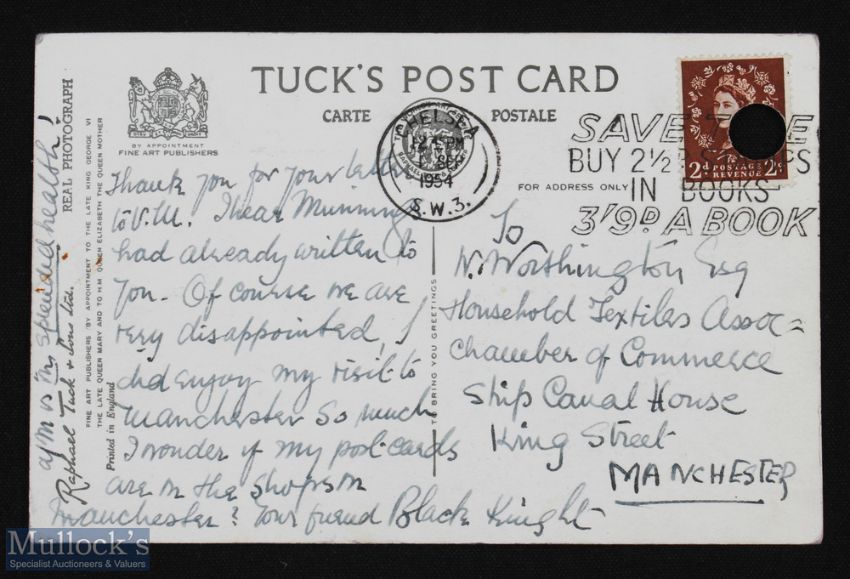 TUCK'S POST CARD
CARTE POSTALE
BY APPOINTMENT
FINE ART PUBLISHERS
FOR ADDRESS ONLY
CHELSEA
PM
SEP
1954
S.W.3.
SAVE
BUY 2½
IN BOOKS
3'9D. A BOOK
2D POSTAGE REVENUE 2D
Thank you for your letter
to V.M. I hear Munnings
had already written to
you. Of course we are
very disappointed, I
did enjoy my visit to
Manchester so much
I wonder if my post-cards
are in the shops in
Manchester? Your friend Black Knight
To
N. Worthington Esq
Household Textiles Assoc=
Chamber of Commerce
Ship Canal House
King Street
MANCHESTER
TO BRING YOU GREETINGS
is in splendid health!
REAL PHOTOGRAPH
Raphael Tuck & Sons Ltd.
FINE ART PUBLISHERS BY APPOINTMENT TO THE LATE KING GEORGE VI
THE LATE QUEEN MARY AND TO H.M. QUEEN ELIZABETH THE QUEEN MOTHER
Printed in England
Mullock's
Specialist Auctioneers & Valuers